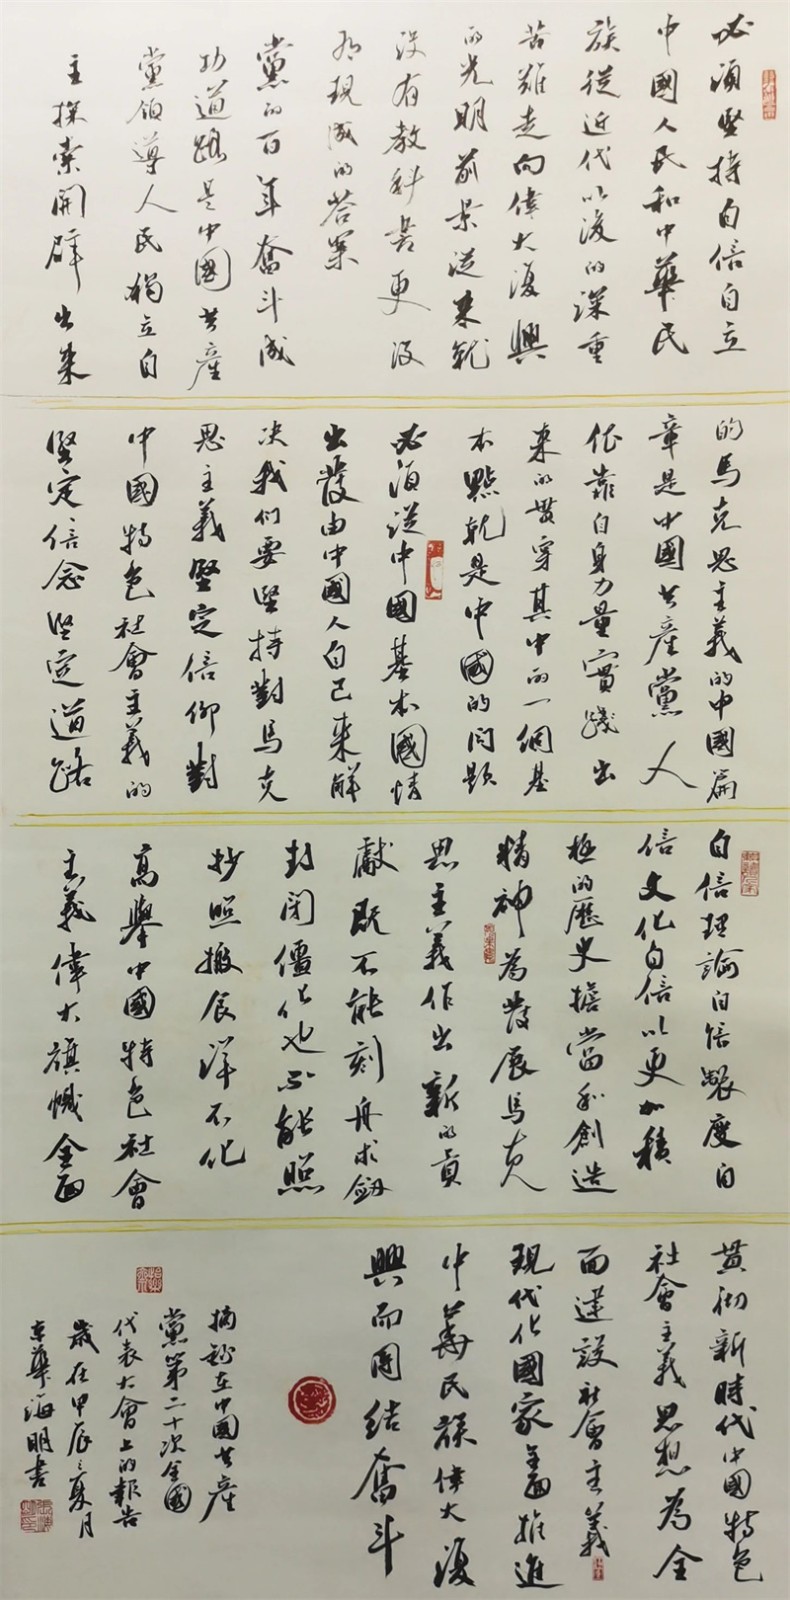 必須堅持自信自立
中國人民和中華民
族從近代以後的深重
苦難走向偉大復興
的光明前景從來就
没有教科書更没
有現成的答案
黨的百年奮斗成
功道路是中國共產
黨領導人民獨立自
主探索開辟出來
的馬克思主義的中國篇
章是中國共產黨人
依靠自身力量實踐出
來的貫穿其中的一個基
本點就是中國的問題
必須從中國基本國情
出發由中國人自己來解
决我們要堅持對馬克
思主義堅定信仰對
中國特色社會主義的
堅定信念堅定道路
自信理論自信製度自
信文化自信以更加積
極的歷史擔當和創造
精神為發展馬克
思主義作出新的貢
獻既不能刻舟求劍
封閉僵化也不能照
抄照搬食洋不化
高舉中國特色社會
主義偉大旗幟全面
貫彻新時代中國特色
社會主義思想為全
面建設社會主義
現代化國家全面推進
中華民族偉大復
興而團結奮斗
摘抄在中國共產
黨第二十次全國
代表大會上的報告
歲在甲辰之夏月
京華海明書